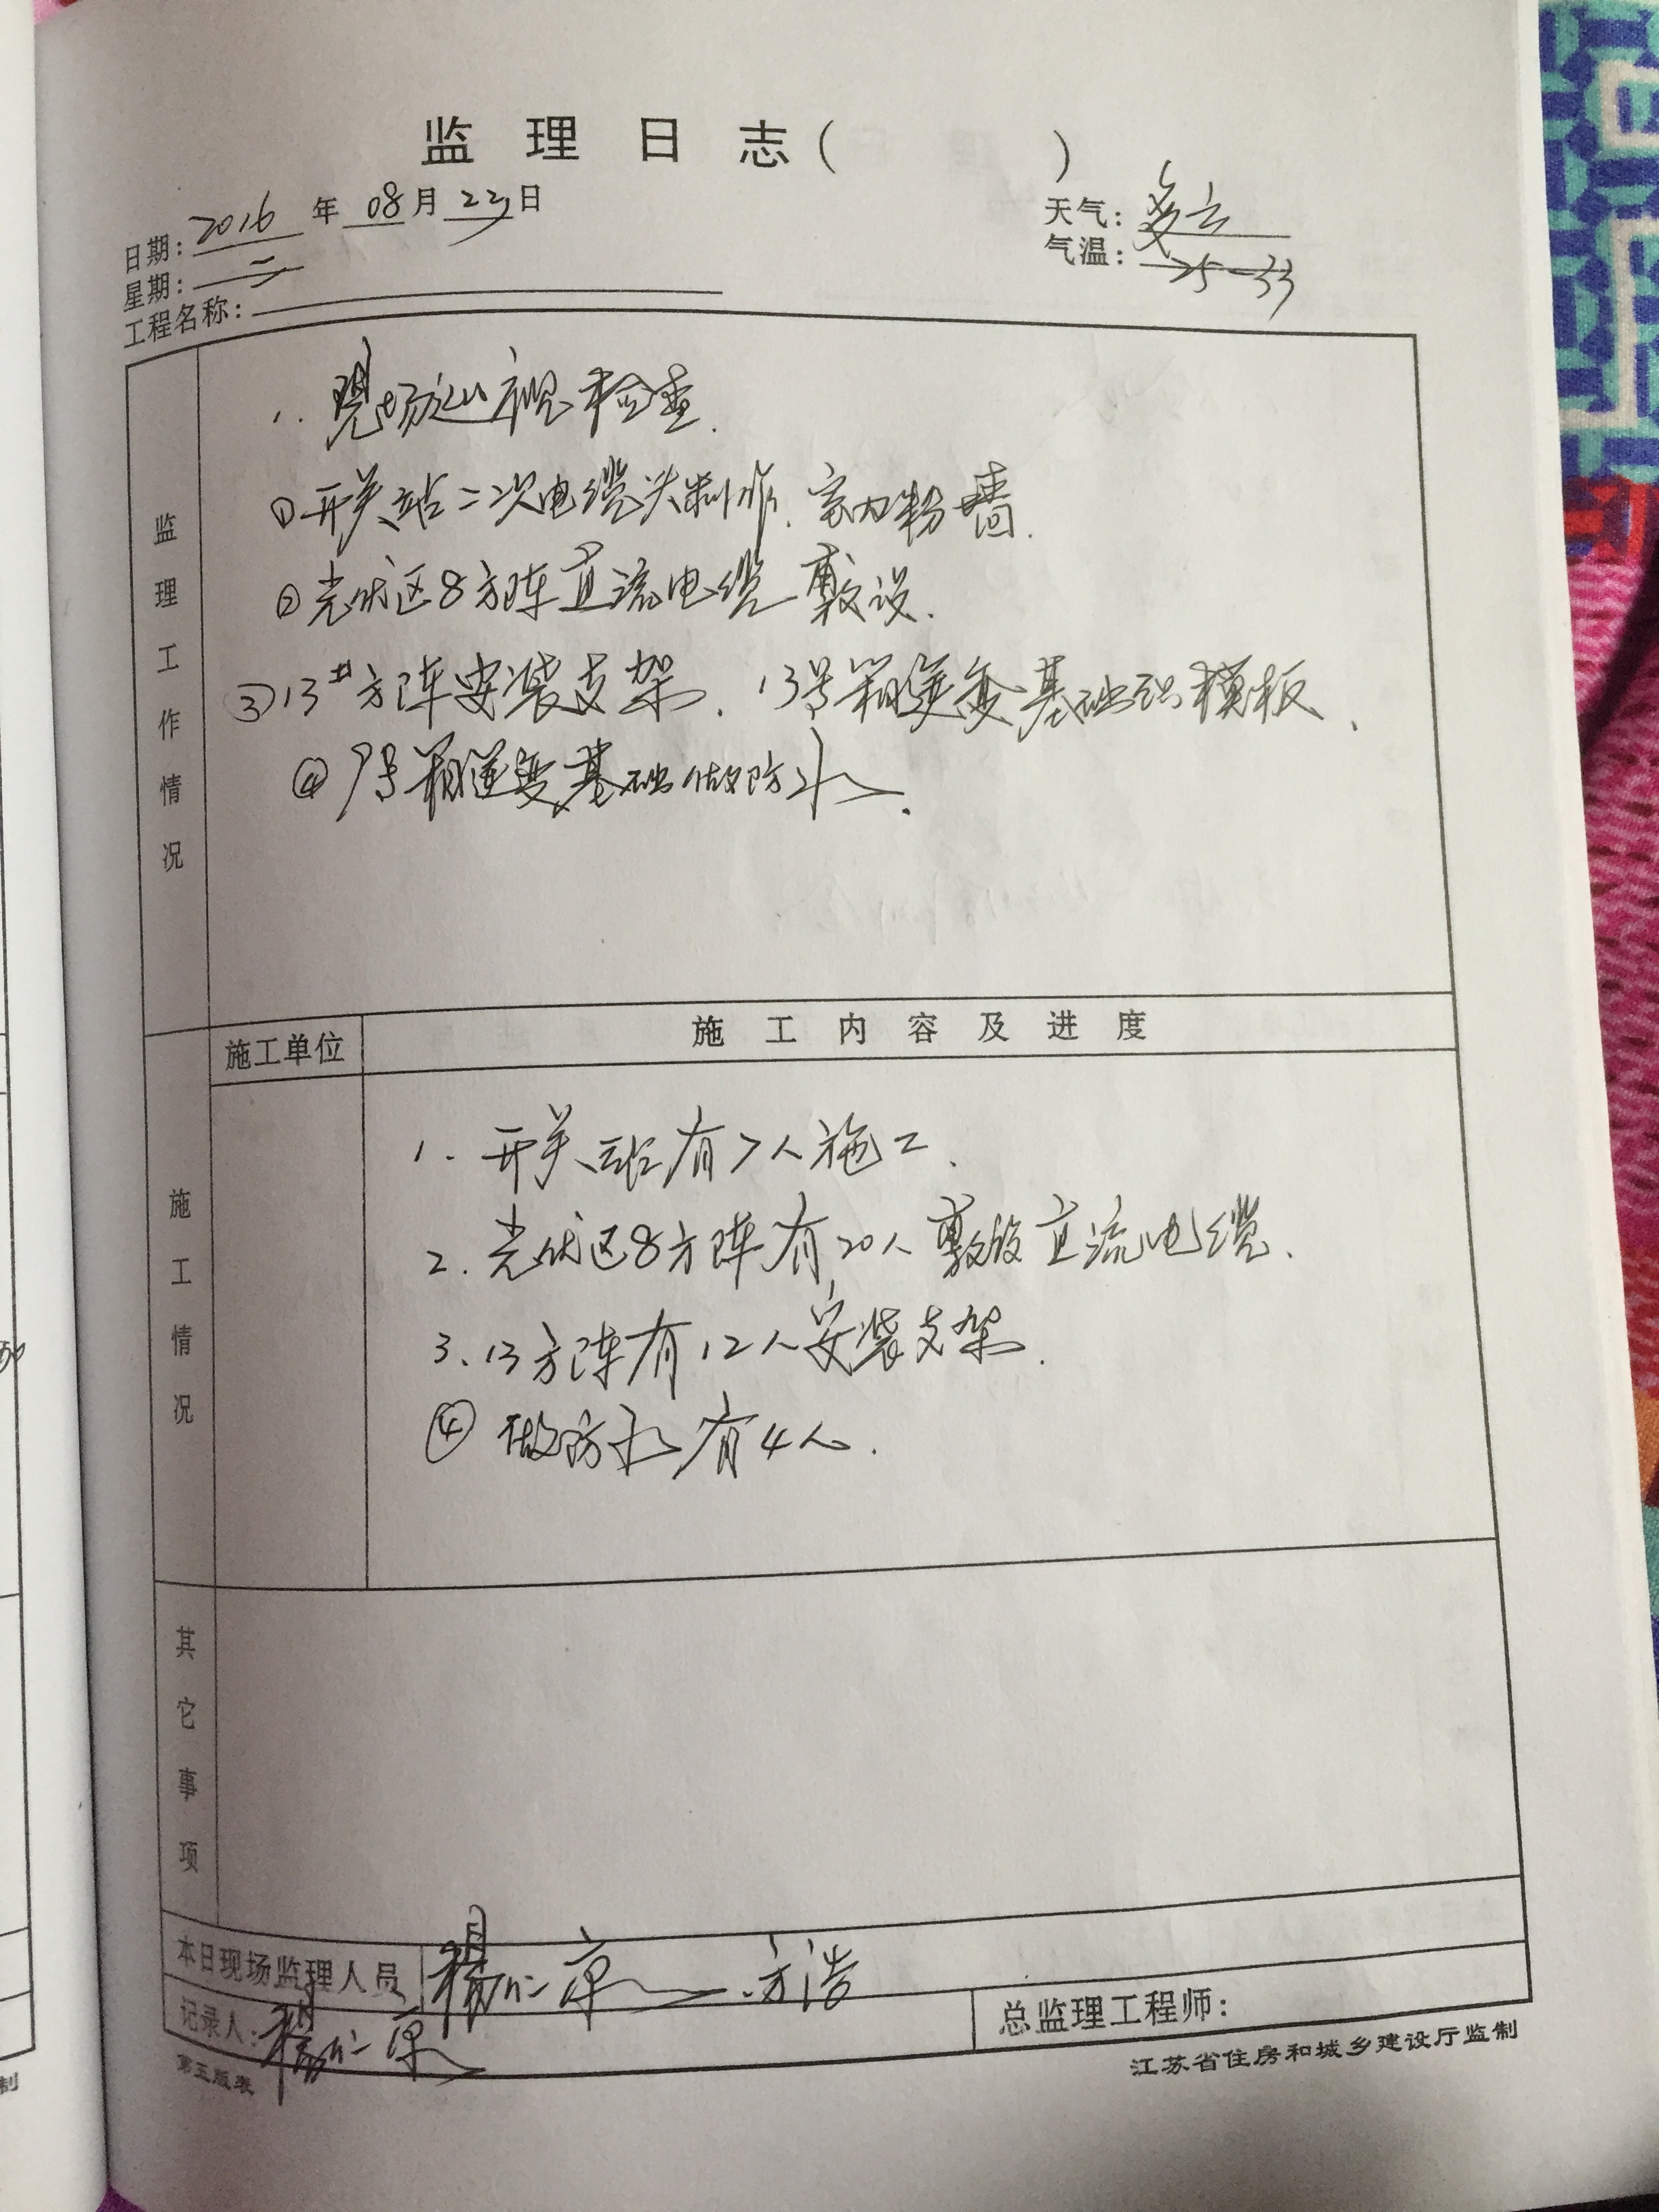 监理日志（ ）
日期：2016年08月23日
天气：多云
星期：二
气温：25-33
工程名称：
监理工作情况
1. 现场巡视检查.
①开关站二次电缆头制作、室内粉墙.
②光伏区8方阵直流电缆敷设.
③13#方阵安装支架、13号箱逆变基础 模板、
④ 号箱逆变基础做防水.
施工单位
施工内容及进度
施工情况
1. 开关站有7人施工.
2. 光伏区8方阵有20人敷设直流电缆、
3、13方阵有12人安装支架.
④ 做防水有4人.
其它事项
本日现场监理人员 杨仁京 方浩
记录人：杨仁京
总监理工程师：
第五版表
江苏省住房和城乡建设厅监制
制